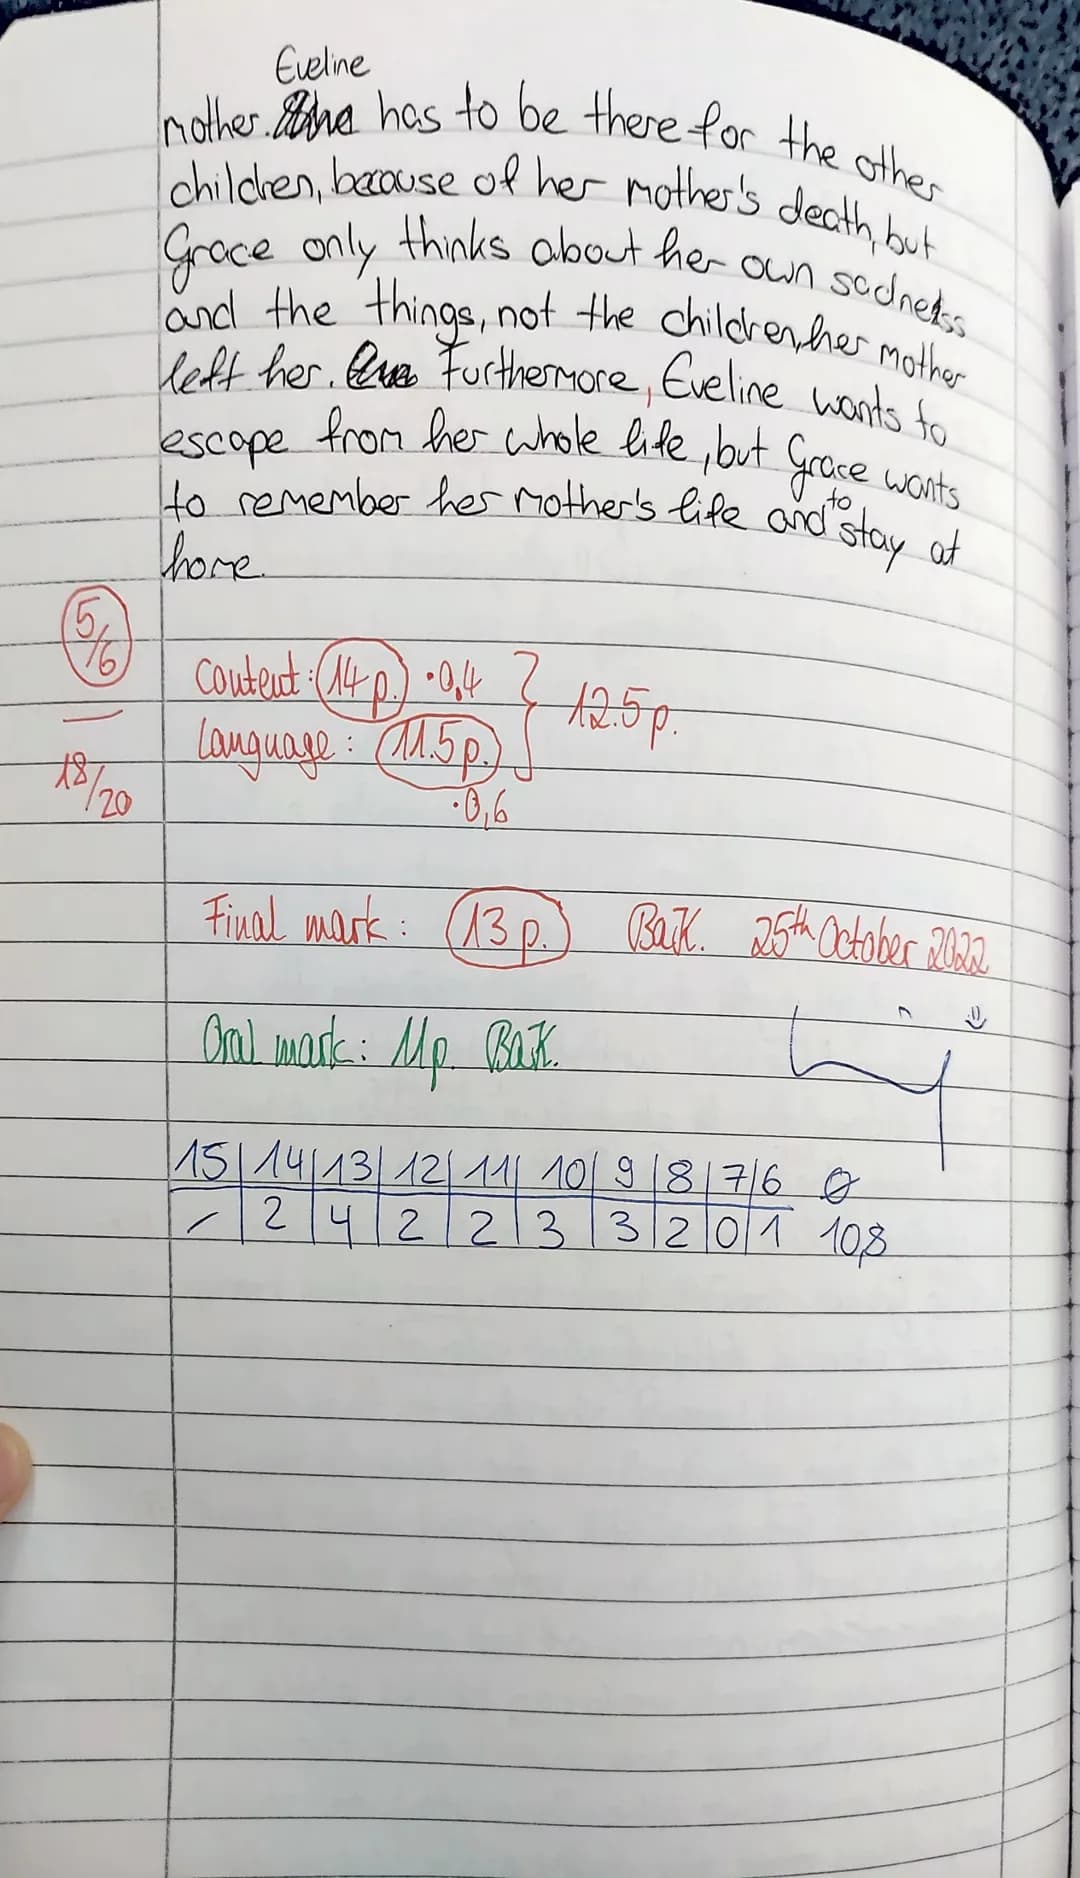 Eveline
mother. has to be there for the other
children, because of her mother's death, but
Grace only thinks about her own sadness
and the things, not the children, her mother
left her. Furthermore, Eveline wants to
escape from her whole life, but Grace wants
to
to remember her mother's life and stay at
home.
5/6
Content: 14 p. · 0,4
12.5 p.
Language: 11.5 p.
· 0,6
18/20
Final mark: 13 p. BaK. 25th October 2022
Oral mark: 11p. BaK.
15 | 14 | 13 | 12 | 11 | 10 | 9 | 8 | 7 | 6 Ø
- | 2 | 4 | 2 | 2 | 3 | 3 | 2 | 0 | 1 10,8